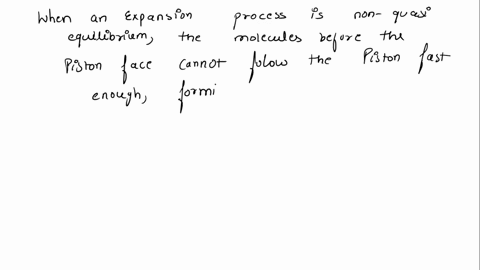 When an expansion process is non-quasi
equilibrium, the molecules before the
Piston face cannot follow the Piston fast
enough, formi